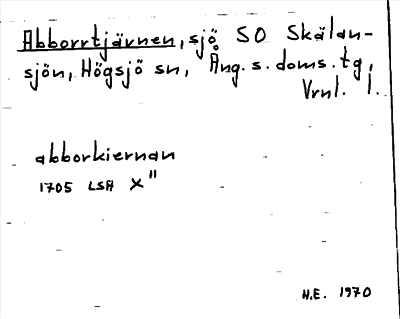 Abborrtjärnen, sjö SO Skälan-
sjön, Högsjö sn, Ång. s. doms. tg,
Vrnl. l.
abborkiernan
1705 LSA X"
H.E. 1970